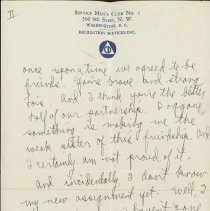 II.
SERVICE MEN'S CLUB NO. 1
306 9th Street, N. W.
WASHINGTON, D. C.
RECREATION SERVICES INC.
once upon a time we agreed to be
friends. You're brave and strong
too. And I think you're the better
half of our partnership. Doggone
something is making me the
weak sister of this friendship. And
I certainly am not proud of it.
And incidentally I don't know
my new assignment yet. Well, I
haven't gone